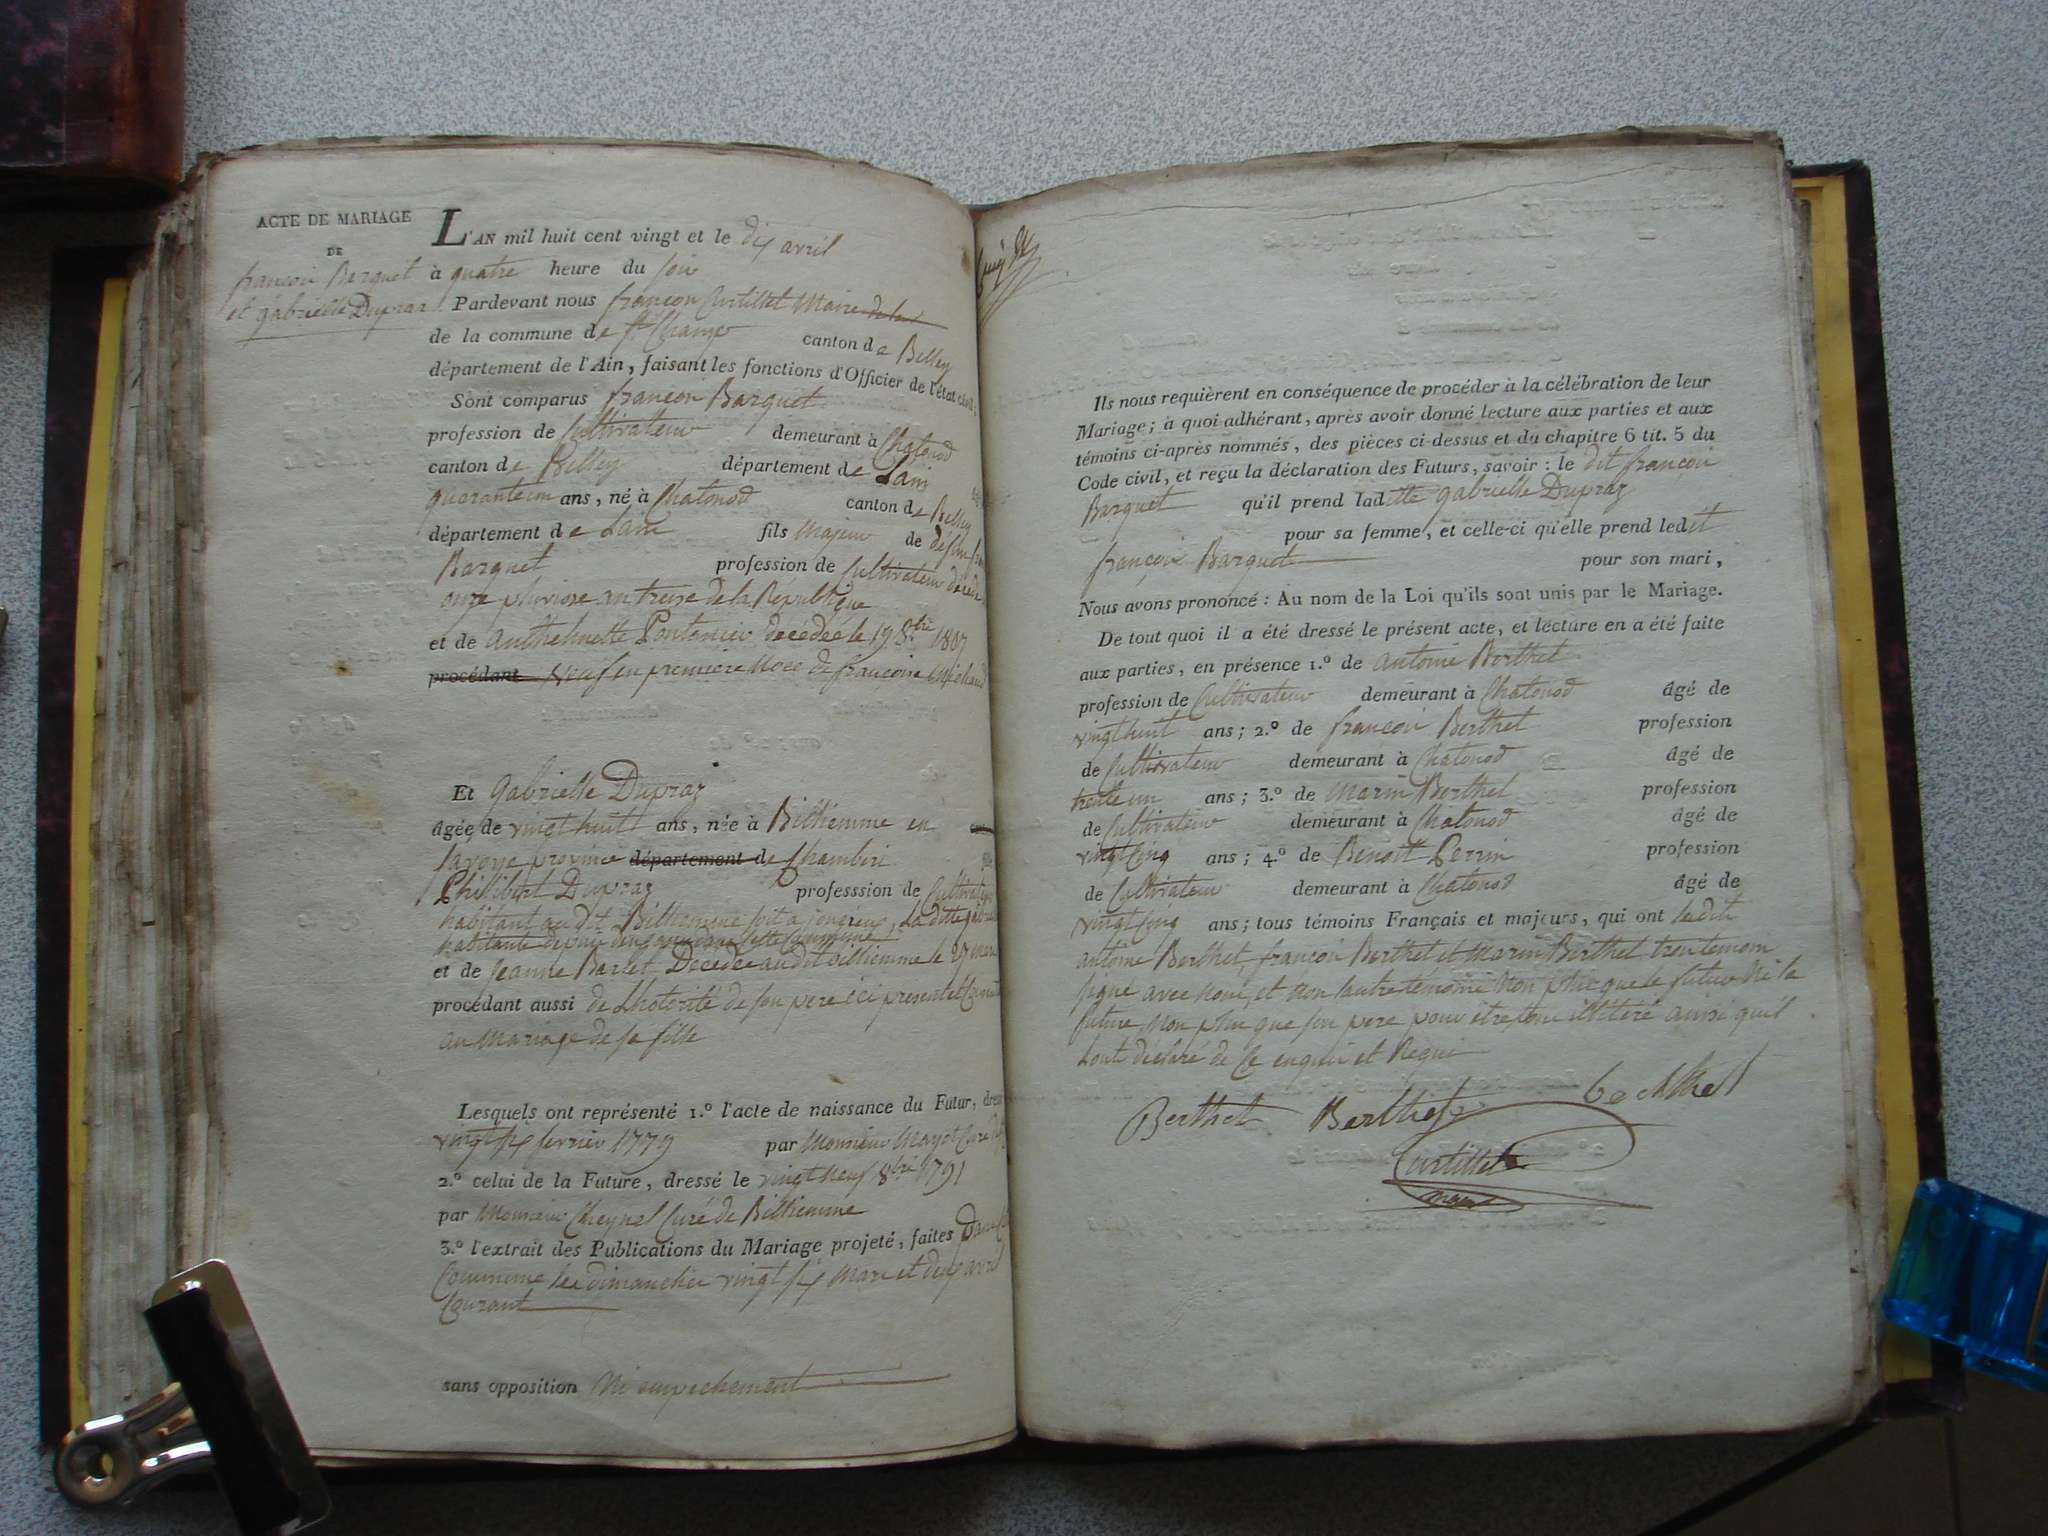 ACTE DE MARIAGE
DE
françois Barquet
et gabrielle Dupraz
L'AN mil huit cent vingt et le dix avril
à quatre heure du soir
Pardevant nous françois Curtillet Maire de la
de la commune de St Champ canton de Belley
département de l'Ain, faisant les fonctions d'Officier de l'état civil;
Sont comparus françois Barquet
profession de Cultivateur demeurant à Chatonod
canton de Belley département de Lain
quaranteun ans, né à Chatonod canton de Belley
département de Lain fils Majeur de défun
Barquet profession de Cultivateur décédé
onze pluviose an treize de la République
et de Anthelmette Pontanier décédée le 19 8.bre 1807
procédant Veuf en première Noce de françoise Michaud
Et Gabrielle Dupraz
âgée de vingt huit ans, née à Billiemme en
Savoye province département de Chambéri
Philibert Dupraz professsion de Cultivateur
habitant au dit Billiemme , La ditte
habitante depuis dans cette Commune
et de Jeanne Barlet Décédée au dit Billiemme le 27 mars
procédant aussi de Lhotorité de son pere ici present et
au Mariage de sa fille
Lesquels ont représenté 1.º l'acte de naissance du Futur, dres
vingt six fevrier 1779 par Monsieur Mayet Curé
2.º celui de la Future, dressé le vingt neuf 8bre 1791
par Monsieur Cheynel Curé de Billiemme
3.º l'extrait des Publications du Mariage projeté, faites Dans
Commune les dimanches vingt six Mars et deux avril
Courant
sans opposition Ni empechement
Ils nous requièrent en conséquence de procéder à la célébration de leur
Mariage; à quoi adhérant, après avoir donné lecture aux parties et aux
témoins ci-après nommés, des pièces ci-dessus et du chapitre 6 tit. 5 du
Code civil, et reçu la déclaration des Futurs, savoir: le dit françois
Barquet qu'il prend ladette gabrielle Dupraz
pour sa femme, et celle-ci qu'elle prend ledit
françois Barquet pour son mari,
Nous avons prononcé: Au nom de la Loi qu'ils sont unis par le Mariage.
De tout quoi il a été dressé le présent acte, et lecture en a été faite
aux parties, en présence 1.º de Antoine Berthet
profession de Cultivateur demeurant à Chatonod âgé de
vingt huit ans; 2.º de françois Berthet profession
de Cultivateur demeurant à Chatonod âgé de
trente un ans; 3.º de Marin Berthet profession
de Cultivateur demeurant à Chatonod âgé de
vingt Cinq ans; 4.º de Benoit Perrin profession
de Cultivateur demeurant à Chatonod âgé de
vingt Cinq ans; tous témoins Français et majeurs, qui ont les dits
antoine Berthet, françois Berthet et Marin Berthet trois temoin
signé avec nous, et non lautre temoins Non plus que le futur Ni la
future, Non plus que son pere pour être tous illétéré ainsi qu'il
sont déclaré de Ce enquis et Requis
Berthet Berthet Berthet
Curtillet
maire